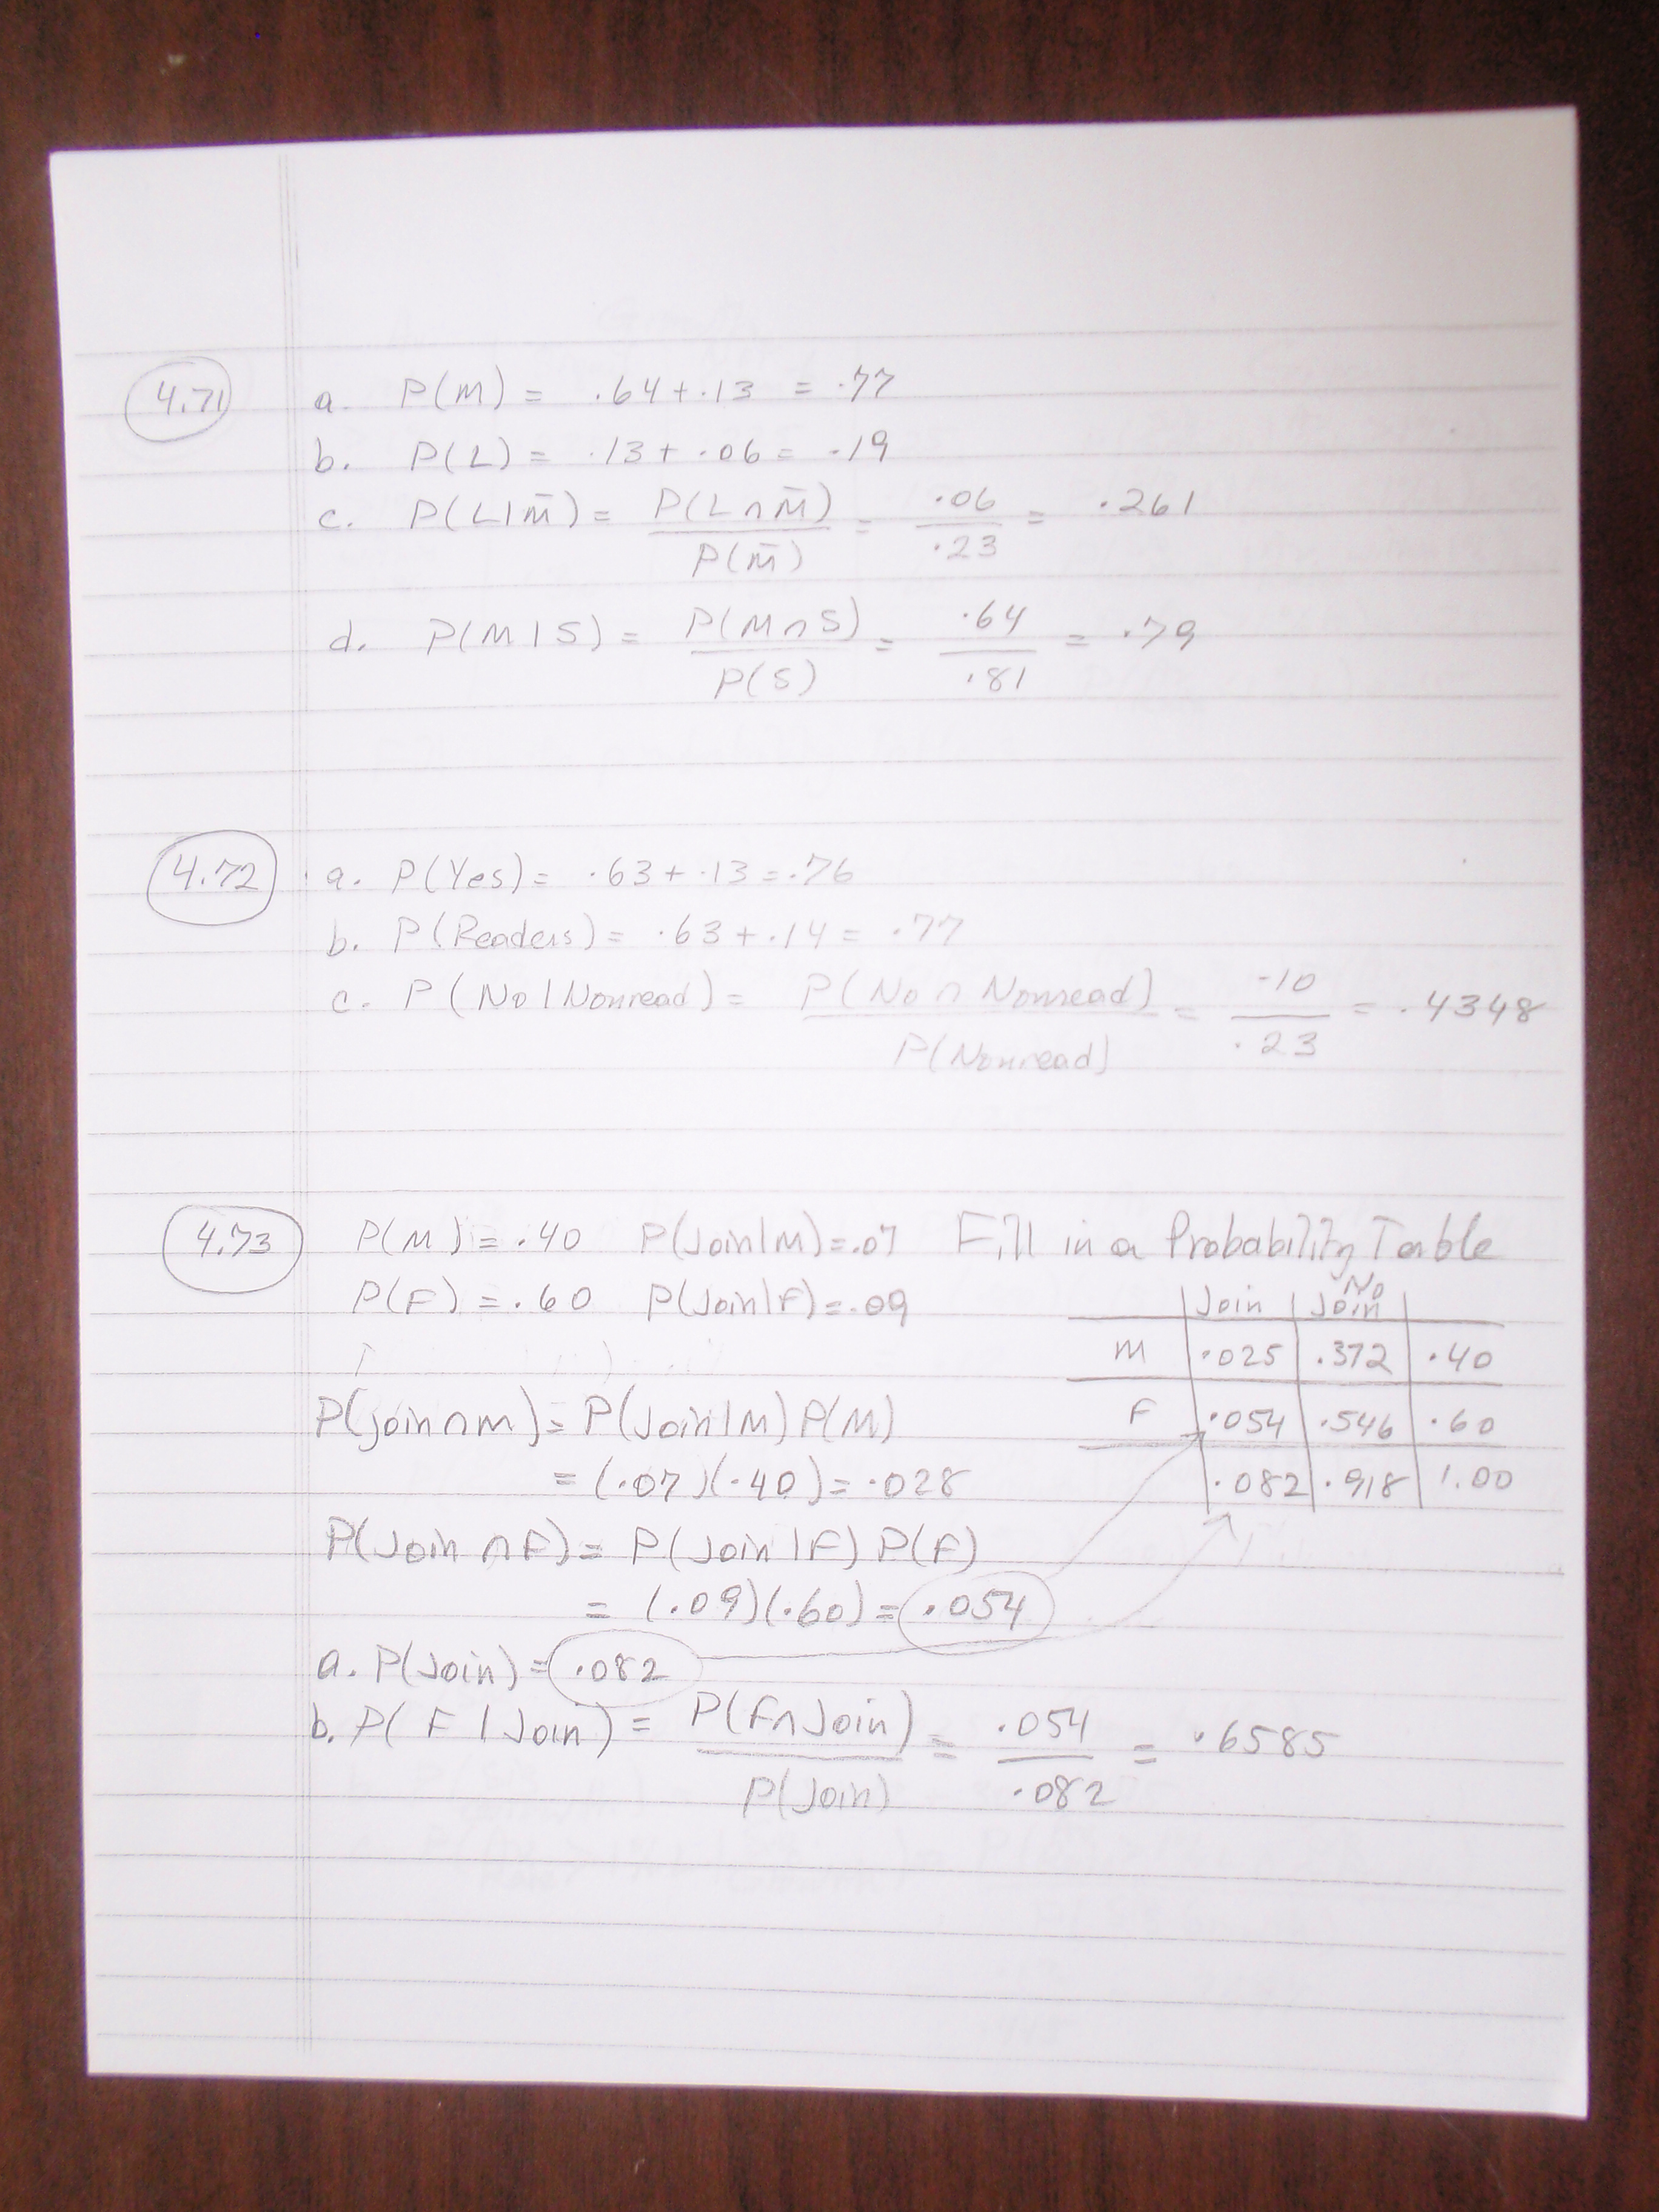 4.71 a. P(M) = .64 + .13 = .77
b. P(L) = .13 + .06 = .19
c. P(L|M̄) = P(L∩M̄) / P(M̄) = .06 / .23 = .261
d. P(M|S) = P(M∩S) / P(S) = .64 / .81 = .79
4.72 a. P(Yes) = .63 + .13 = .76
b. P(Readers) = .63 + .14 = .77
c. P(No|Nonread) = P(No ∩ Nonread) / P(Nonread) = .10 / .23 = .4348
4.73 P(M) = .40 P(Join|M) = .07 Fill in a Probability Table
P(F) = .60 P(Join|F) = .09
Join No Join
M .025 .372 .40
F .054 .546 .60
.082 .918 1.00
P(join∩M) = P(Join|M) P(M)
= (.07)(.40) = .028
P(Join ∩ F) = P(Join|F) P(F)
= (.09)(.60) = .054
a. P(Join) = .082
b. P(F|Join) = P(F∩Join) / P(Join) = .054 / .082 = .6585